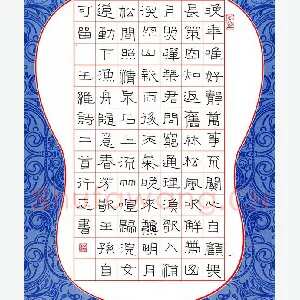 晚年唯好靜萬事不關心自顧無
長策空知返舊林松風吹解帶山
月照彈琴君問窮通理漁歌入浦
深空山新雨後天氣晚來秋明月
松間照清泉石上流竹喧歸浣女
蓮動下漁舟隨意春芳歇王孫自
可留 王維詩二首 書